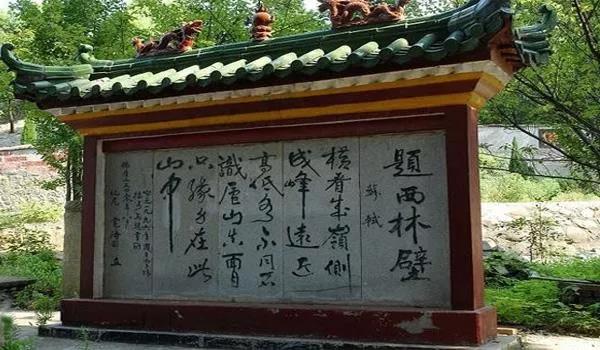 題西林壁
蘇軾
橫看成嶺側
成峰遠近
高低各不同不
識廬山真面目
只緣身在此
山中